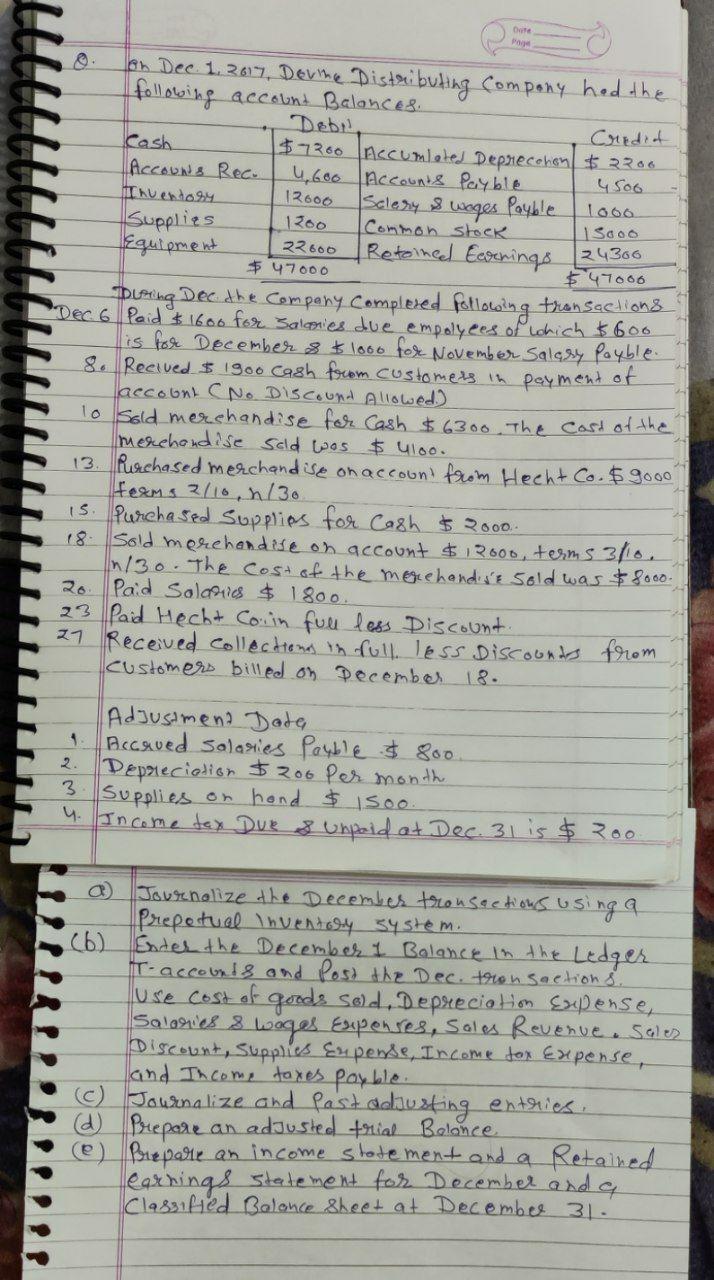 Date
Page
Q. On Dec. 1, 2017, Devine Distributing Company had the
following account Balances.
Debit Credit
Cash $7200 Accumlated Deprecation $ 2200
Accounts Rec. 4,600 Accounts Payble 4500
Inventory 12000 Salary & wages Payble 1000
Supplies 1200 Common stock 15000
Equipment 22000 Retained Earnings 24300
$ 47000 $ 47000
During Dec. the Company Completed following transactions
Dec. 6 Paid $ 1600 for Salaries due empolyees of which $ 600
is for December & $ 1000 for November Salary Payble.
8. Recived $ 1900 Cash from customers in payment of
account (No Discount Allowed)
10 Sold merchandise for Cash $ 6300. The Cost of the
merchandise sold was $ 4100.
13. Purchased merchandise on account from Hecht Co. $ 9000
terms 2/10, n/30
15. Purchased Supplies for Cash $ 2000.
18. Sold merchandise on account $ 12000, terms 3/10,
n/30. The Cost of the merchandise Sold was $ 8000.
20. Paid Salaries $ 1800.
23 Paid Hecht Co. in full less Discount.
27 Received Collections in full less Discounts from
Customers billed on December 18.
Adjustment Data
1. Accrued Salaries Payble $ 800.
2. Depreciation $ 200 Per month
3. Supplies on hand $ 1500.
4. Income tax Due & unpaid at Dec. 31 is $ 200
a) Journalize the December transactions using a
Prepetual Inventory system.
(b) Enter the December 1 Balance in the Ledger
T-accounts and Post the Dec. transactions.
Use cost of goods sold, Depreciation Expense,
Salaries & wages Expenses, Sales Revenue. Sales
Discount, Supplies Expense, Income tax Expense,
and Income taxes payble.
(c) Journalize and Post adjusting entries.
(d) Prepare an adjusted trial Balance.
(e) Prepare an income statement and a Retained
earnings statement for December and a
Classified Balance Sheet at December 31.